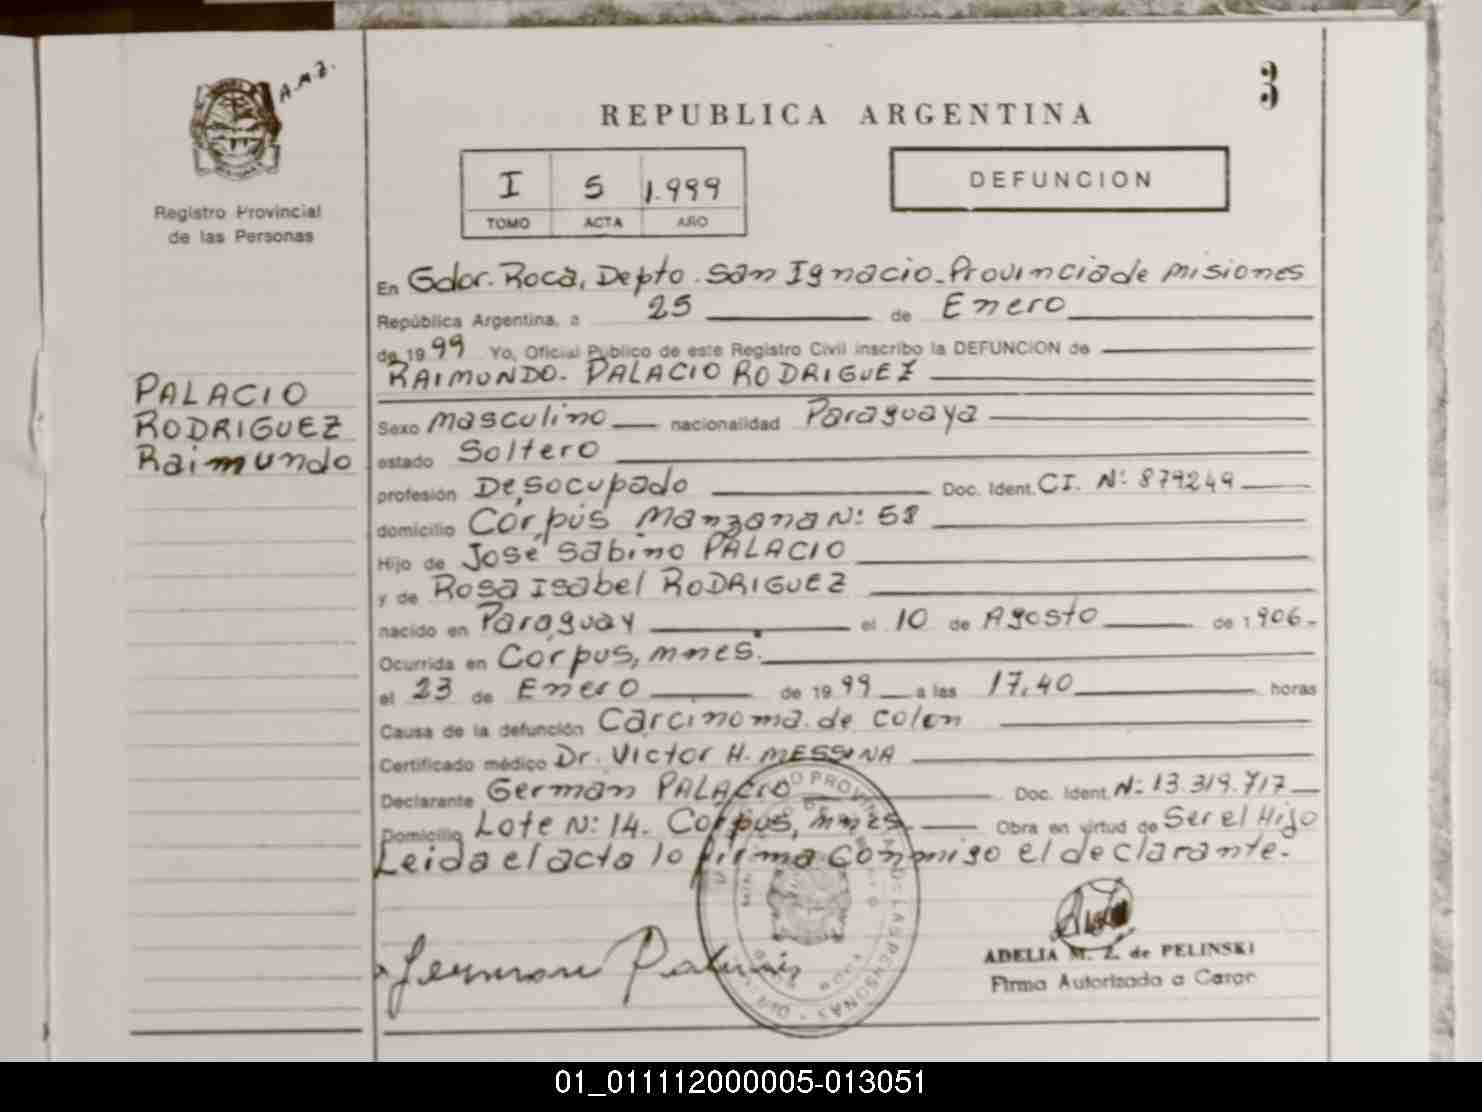 A.M.Z.
3
REPUBLICA ARGENTINA
I 5 1.999
TOMO ACTA AÑO
DEFUNCION
Registro Provincial
de las Personas
En Gdor. Roca, Depto. San Ignacio-Provincia de Misiones
República Argentina, a 25 de Enero
de 1999 Yo, Oficial Público de este Registro Civil inscribo la DEFUNCION de
RAIMUNDO. PALACIO RODRIGUEZ
PALACIO
RODRIGUEZ
Raimundo
Sexo Masculino nacionalidad Paraguaya
estado Soltero
profesión Desocupado Doc. Ident. CI. Nº: 879249
domicilio Corpus Manzana Nº: 58
Hijo de José Sabino PALACIO
y de Rosa Isabel RODRIGUEZ
nacido en Paraguay el 10 de Agosto de 1906-
Ocurrida en Corpus, mnes.
el 23 de Enero de 1999 a las 17,40 horas
Causa de la defunción Carcinoma de colon
Certificado médico Dr. Victor H. MESSINA
Declarante Germán PALACIO Doc. Ident. Nº: 13.319.717
Domicilio Lote Nº: 14. Corpus, mnes. Obra en virtud de Ser el Hijo
Leida el acta lo firma conmigo el declarante.
German Palacio
ADELIA M. Z. de PELINSKI
Firma Autorizada a Cargo
01_011112000005-013051